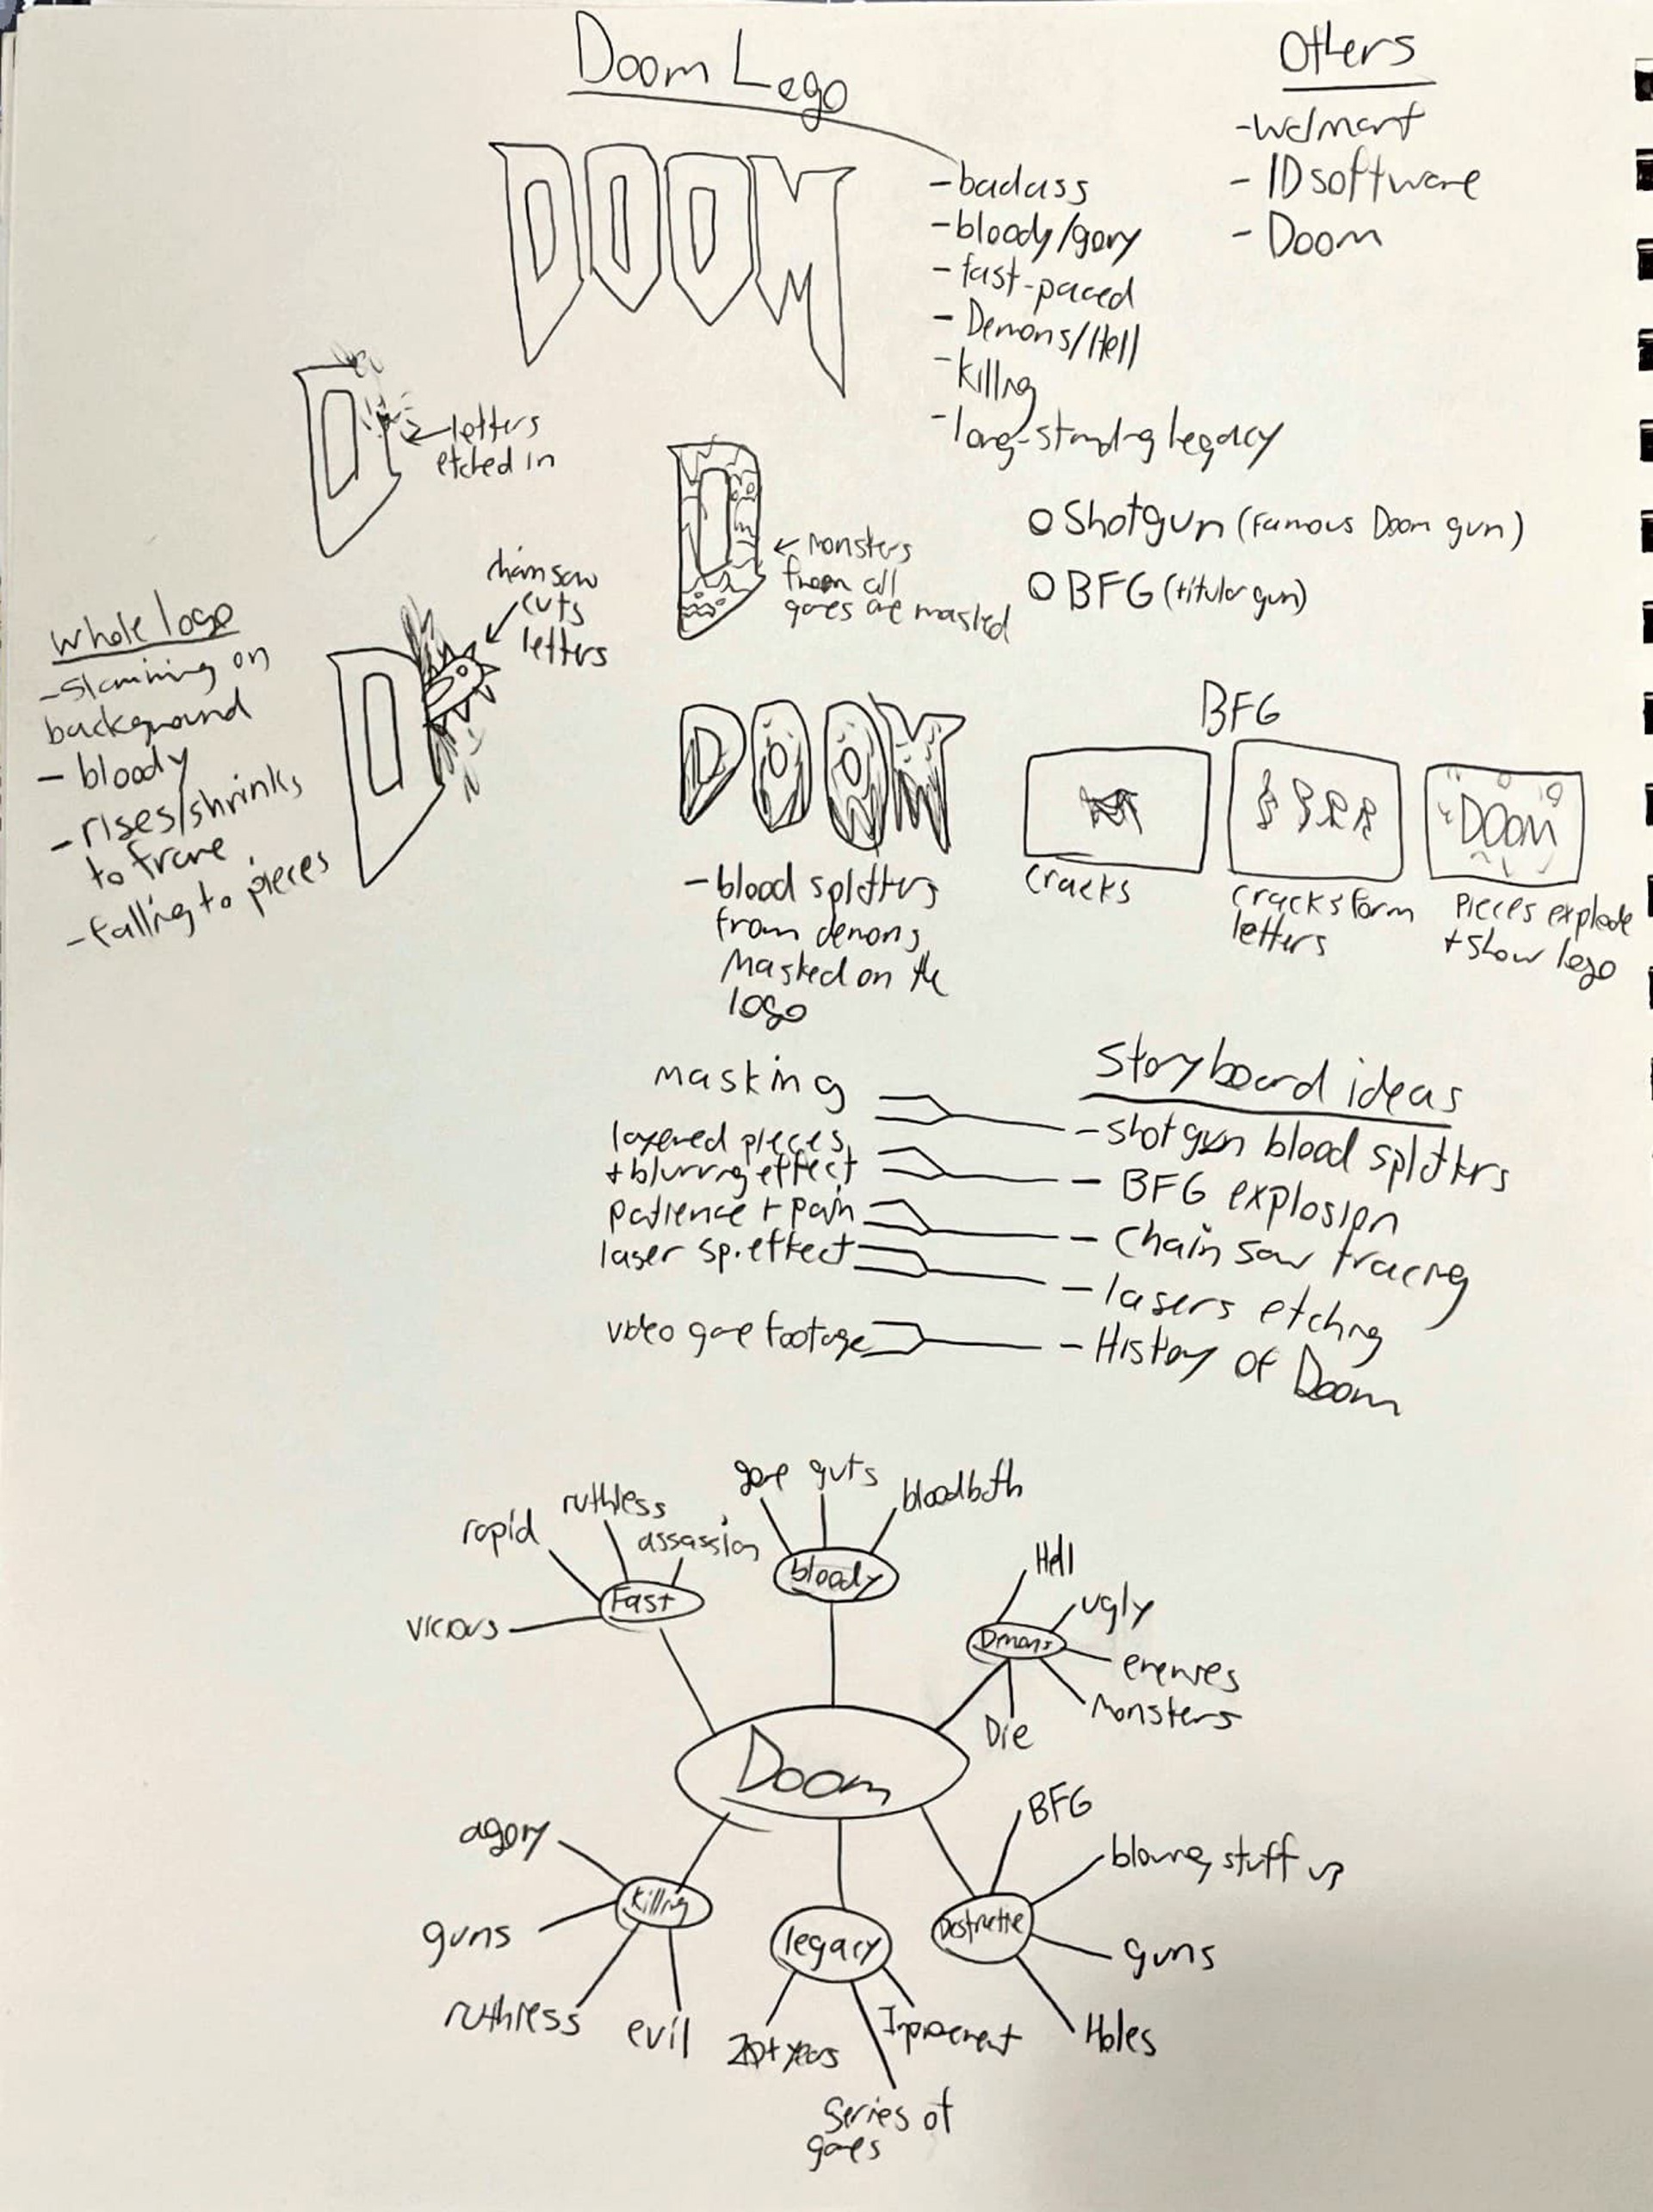 Doom Logo
Others
-Walmart
- IDsoftware
- Doom
DOOM
-badass
-bloody/gory
- fast-paced
- Demons/Hell
-killng
-long-standing legacy
letters
etched in
monsters
from all
games are masked
O Shotgun (Famous Doom gun)
O BFG (titular gun)
chainsaw
cuts
letters
Whole logo
-slamming on
background
- bloody
- rises/shrinks
to frame
-falling to pieces
DOOM
- blood splatters
from demons
Masked on the
logo
BFG
DOOM
cracks
cracks form
letters
pieces explode
+ show logo
Storyboard ideas
masking
-shotgun blood splatters
layered pieces
+ blurring effect
- BFG explosion
patience + pain
- Chain saw tracing
laser sp. effect
- lasers etchng
video game footage
- History of Doom
Doom
Fast
vicious
rapid
ruthless
assassion
bloody
gore
guts
bloodbath
Dmons
Hell
ugly
enemies
Monsters
Die
killng
agony
guns
ruthless
evil
legacy
20+ years
Series of
games
Destructive
BFG
blowing stuff up
guns
Holes